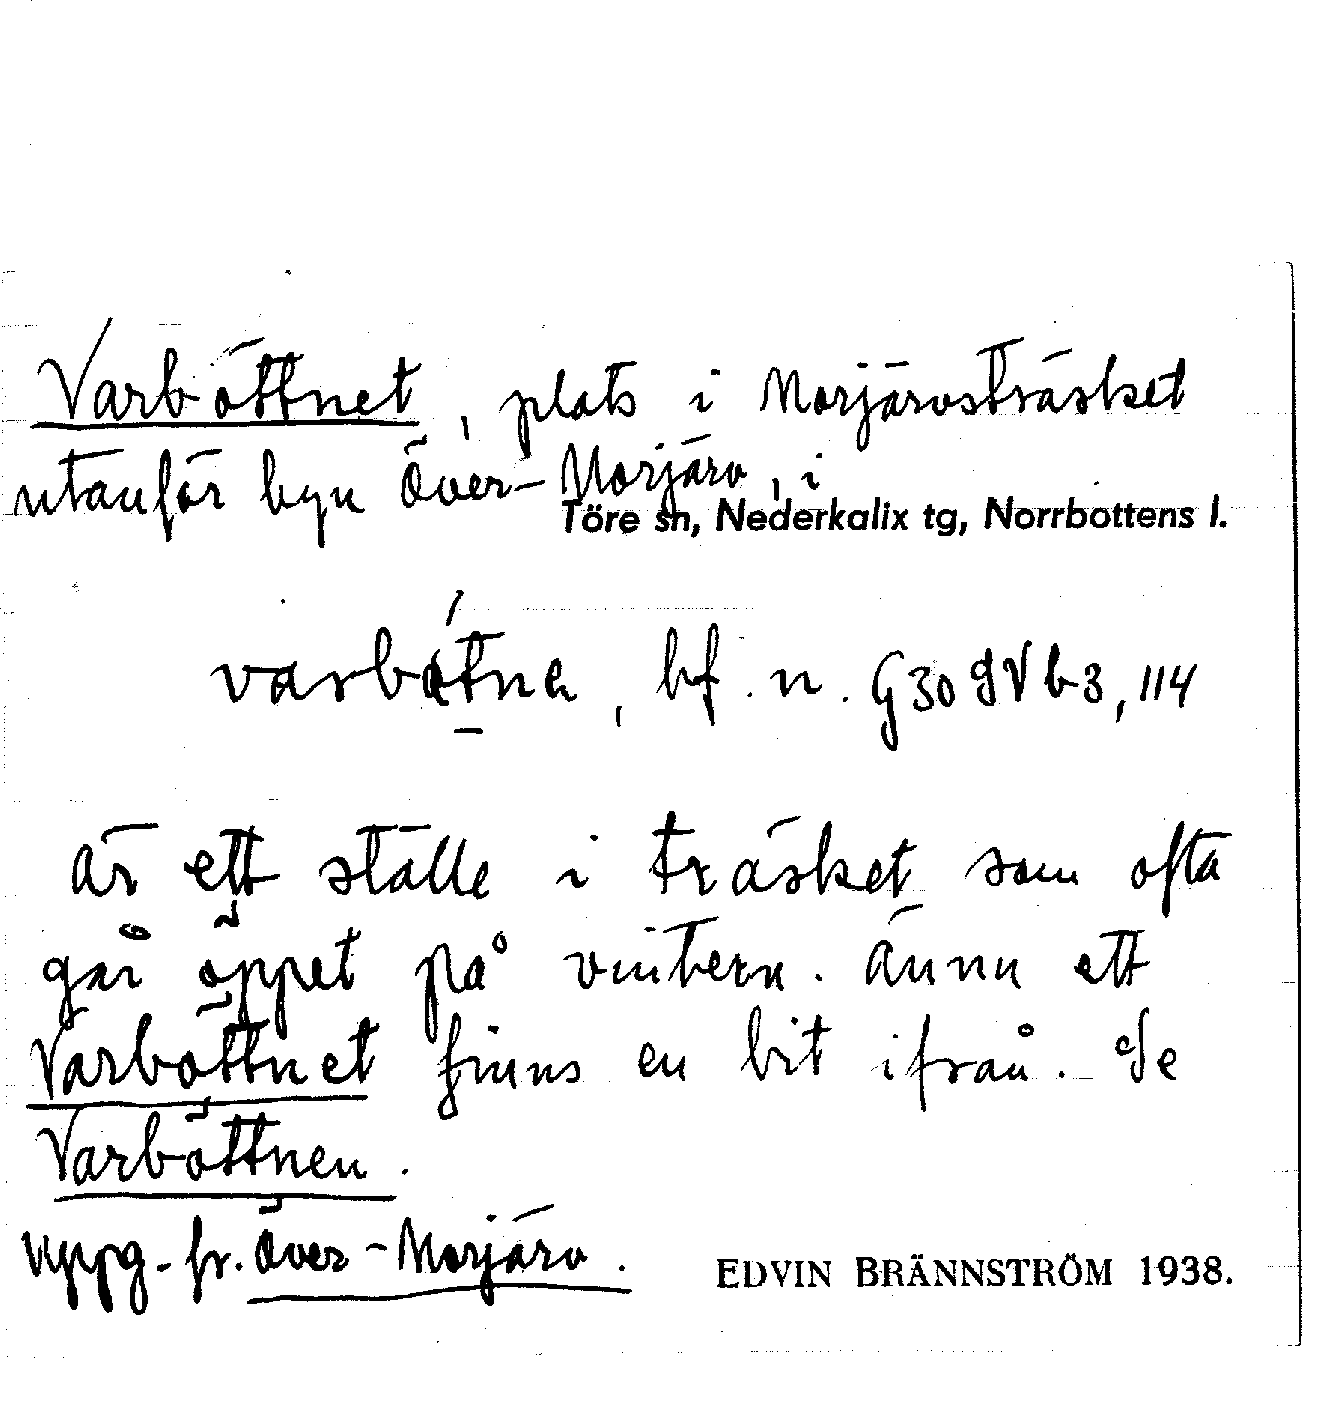 Varböttnet, plats i Morjärvsträsket
utanför byn Över-Morjärv, i
Töre sn, Nederkalix tg, Norrbottens l.
bf. n. G30 3,114
är ett ställe i träsket som ofta
går öppet på vintern. Ännu ett
Varböttnet finns en bit ifrån. Se
Varböttnen.
Uppg. fr. Över-Morjärv.
EDVIN BRÄNNSTRÖM 1938.